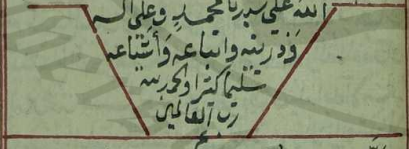 الله على سيدنا محمد وعلى اله
وذريته واتباعه وأشياعه
تسليما كثيرا والحمد لله
رب العالمين